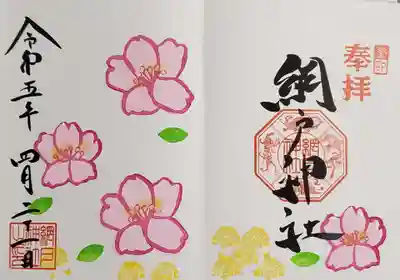 奉拝
網戸神社
令和五年
四月二十一日